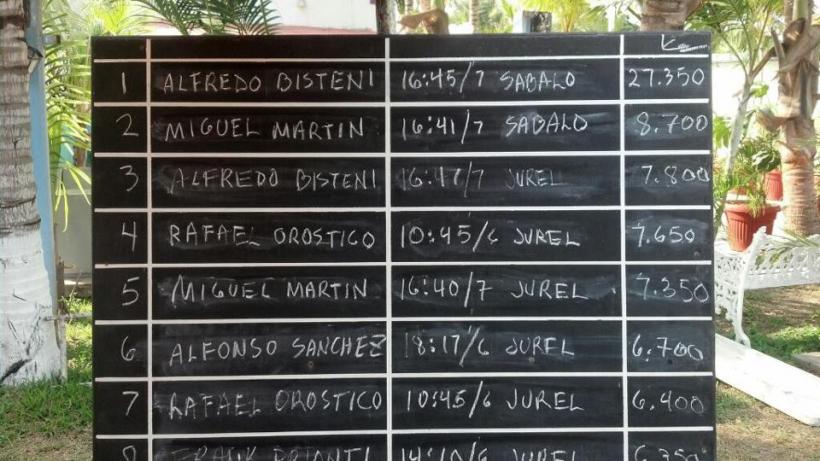 1 ALFREDO BISTENI 16:45/7 SABALO 27.350
2 MIGUEL MARTIN 16:41/7 SABALO 8.700
3 ALFREDO BISTENI 16:47/7 JUREL 7.800
4 RAFAEL OROSTICO 10:45/6 JUREL 7.650
5 MIGUEL MARTIN 16:40/7 JUREL 7.350
6 ALFONSO SANCHEZ 18:17/6 JUREL 6.700
7 RAFAEL OROSTICO 10:45/6 JUREL 6.400
8 JUREL